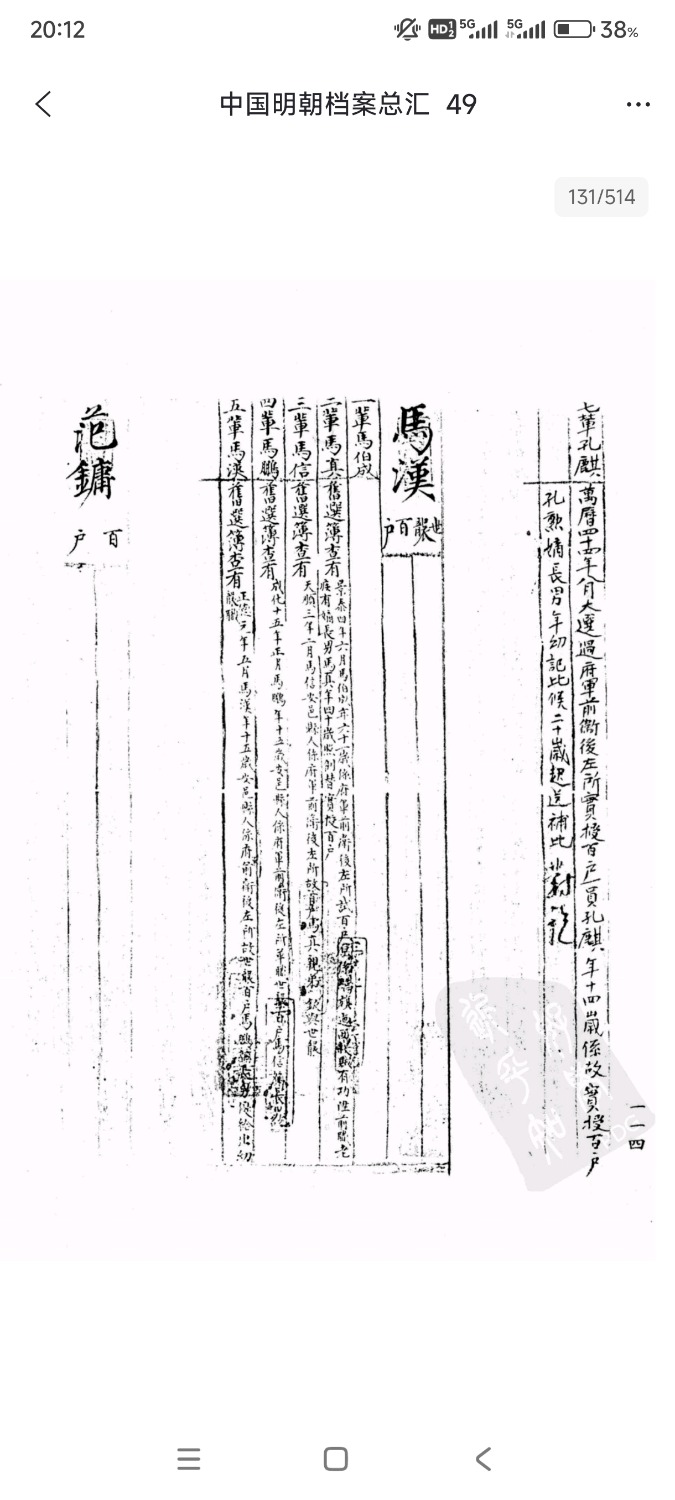 20:12
HD 1 2 5G 5G 38%
中国明朝档案总汇 49
131/514
七輩孔麒 萬曆四十四年八月大選過府軍前衛後左所實授百户一員孔麒年十四歲係故實授百户
孔勲嫡長男年幼記比候二十歲起送補比
一一四
馬漢
世襲百户
一輩馬伯成
二輩馬真 舊選簿查有
景泰四年六月馬伯成年六十一歲係府軍前衛後左所試百户 有功陞前職老
疾有嫡長男馬真年四十歲照例替實授百户
三輩馬信 舊選簿查有
天順三年二月馬信安邑縣人係府軍前衛後左所故 馬真親弟欽與世襲
四輩馬鵬 舊選簿查有
成化十五年正月馬鵬年十五歲安邑縣人係府軍前衛後左所 世襲百户馬信嫡長男
五輩馬漢 舊選簿查有
正德元年五月馬漢年十五歲安邑縣人係府前衛後左所故世襲百户馬鵬嫡長男優給出幼
襲職
范鏞
百户